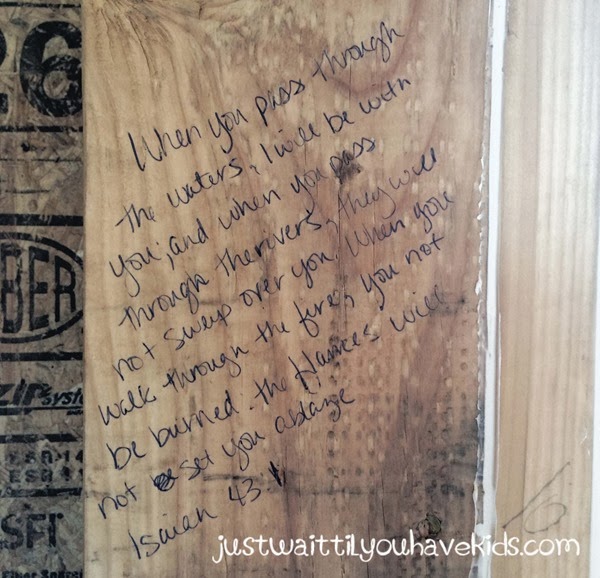 26
BER
ZIPSyste
ESR-14
ESR
SFI
When you pass through
the waters, I will be with
you; and when you pass
through the rivers, they will
not sweep over you. When you
walk through the fire, you not
be burned. the flames will
not set you ablaze
Isaiah 43
16
justwaittilyouhavekids.com